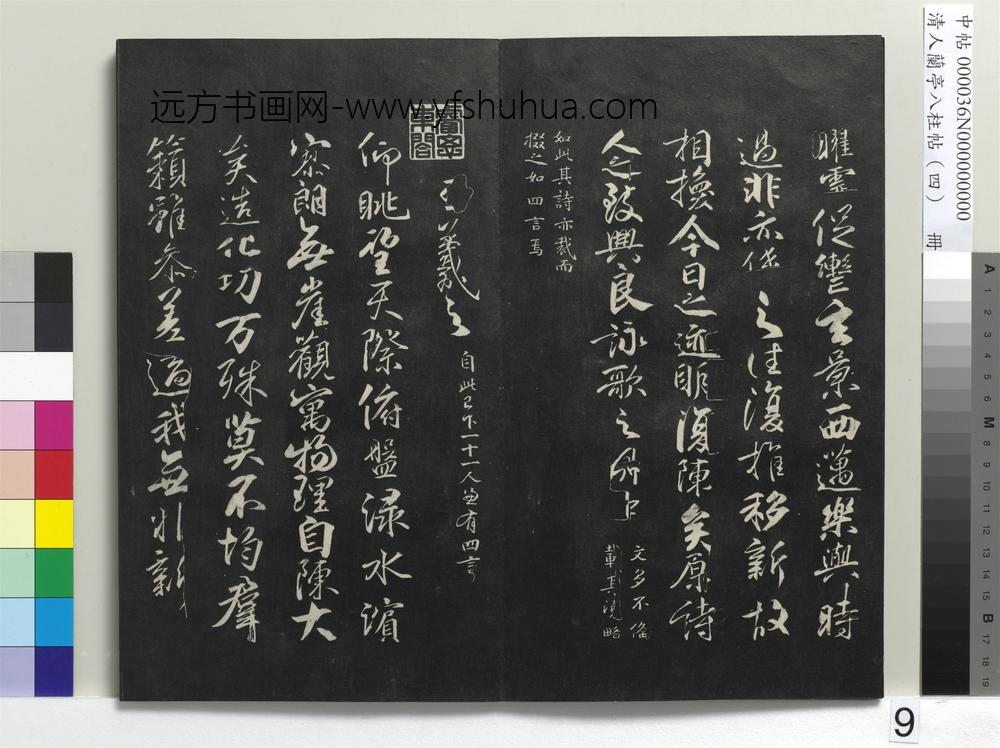 远方书画网-www.yfshuhua.com
中帖 000036N000000000
清人蘭亭八柱帖(四) 冊
曜靈促轡玄景西邁樂與時
過悲亦係之往復推移新故
相換今日之迹明復陳矣原詩
人之致興良詠歌之有由
文多不備
載其 略
如此其詩亦裁而
掇之如四言焉
王羲之 自此已下一十一人並有四言
仰眺望天際俯盤淥水濱
寥朗無崖觀寓物理自陳大
矣造化功万殊莫不均羣
籟雖參差適我無非新
A 1 2 3 4 5 6 M 8 9 10 11 12 13 14 15 B 17 18 19
9